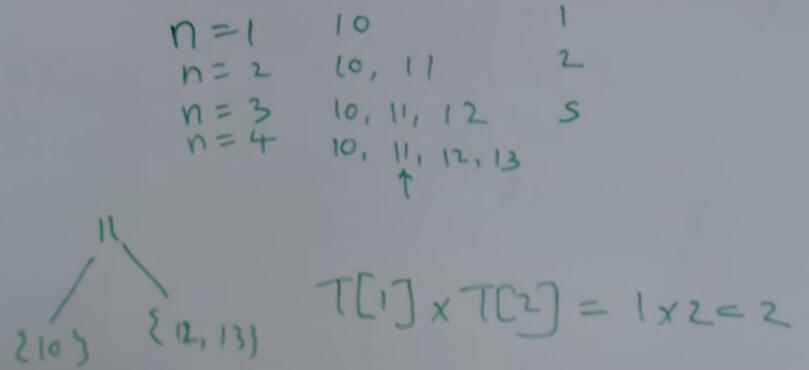 n = 1 10 1
n = 2 10, 11 2
n = 3 10, 11, 12 5
n = 4 10, 11, 12, 13
↑
11
{10} {12, 13}
T[1] x T[2] = 1 x 2 = 2